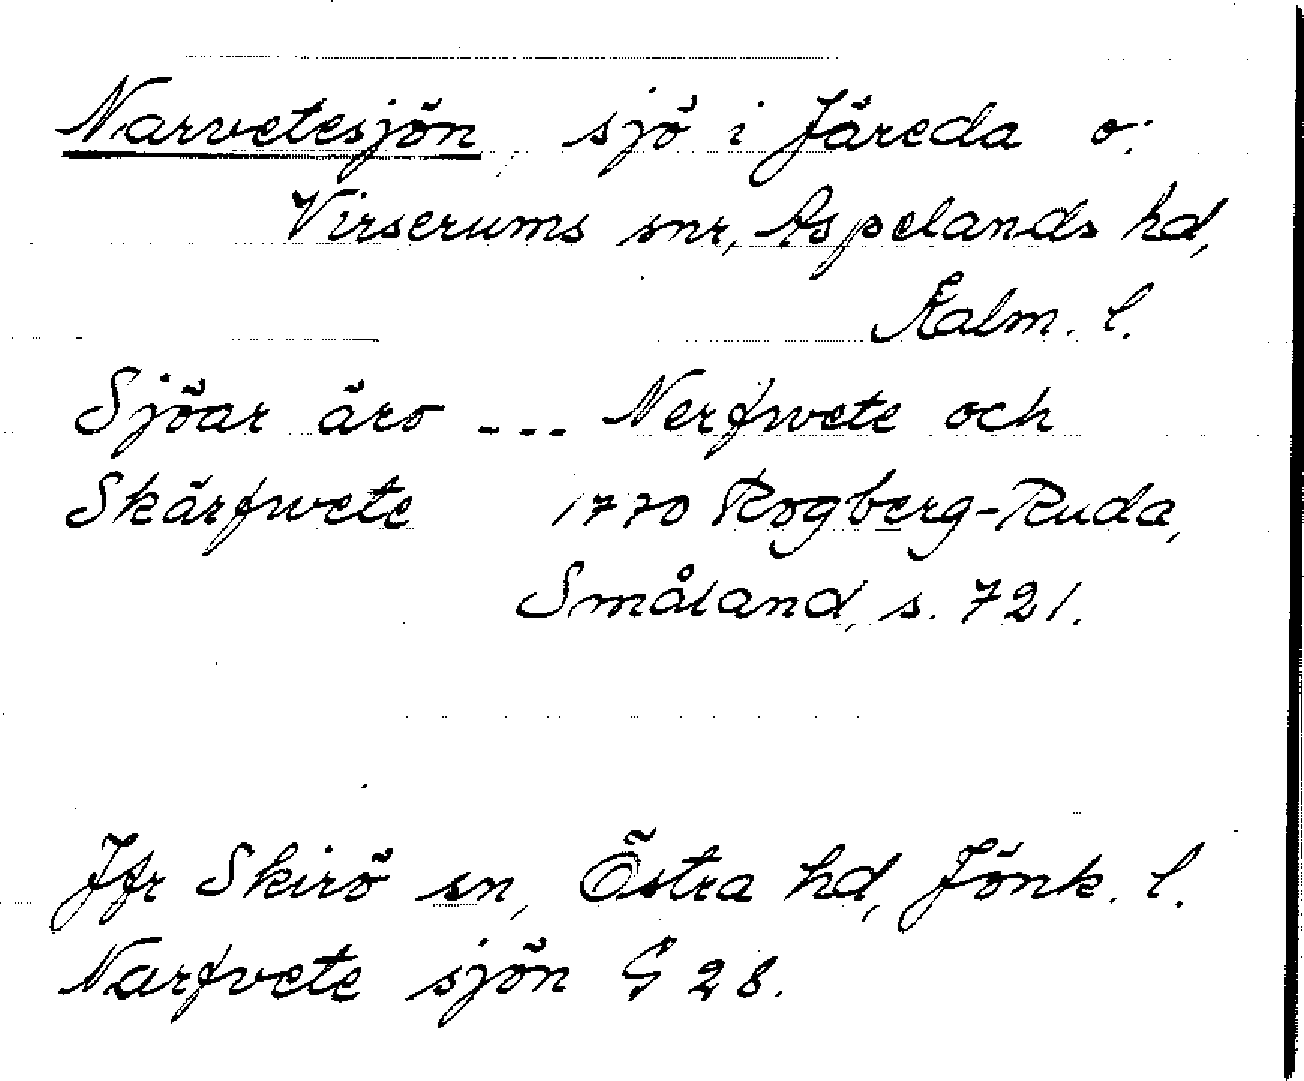 Narvetesjön, sjö i Järeda o.
Virserums snr, Aspelands hd,
Kalm. l.
Sjöar äro --- Nerfwete och
Skärfwete 1770 Rogberg-Ruda,
Småland, s. 721.
Jfr Skirö sn, Östra hd, Jönk. l.
Narfvete sjön G 28.